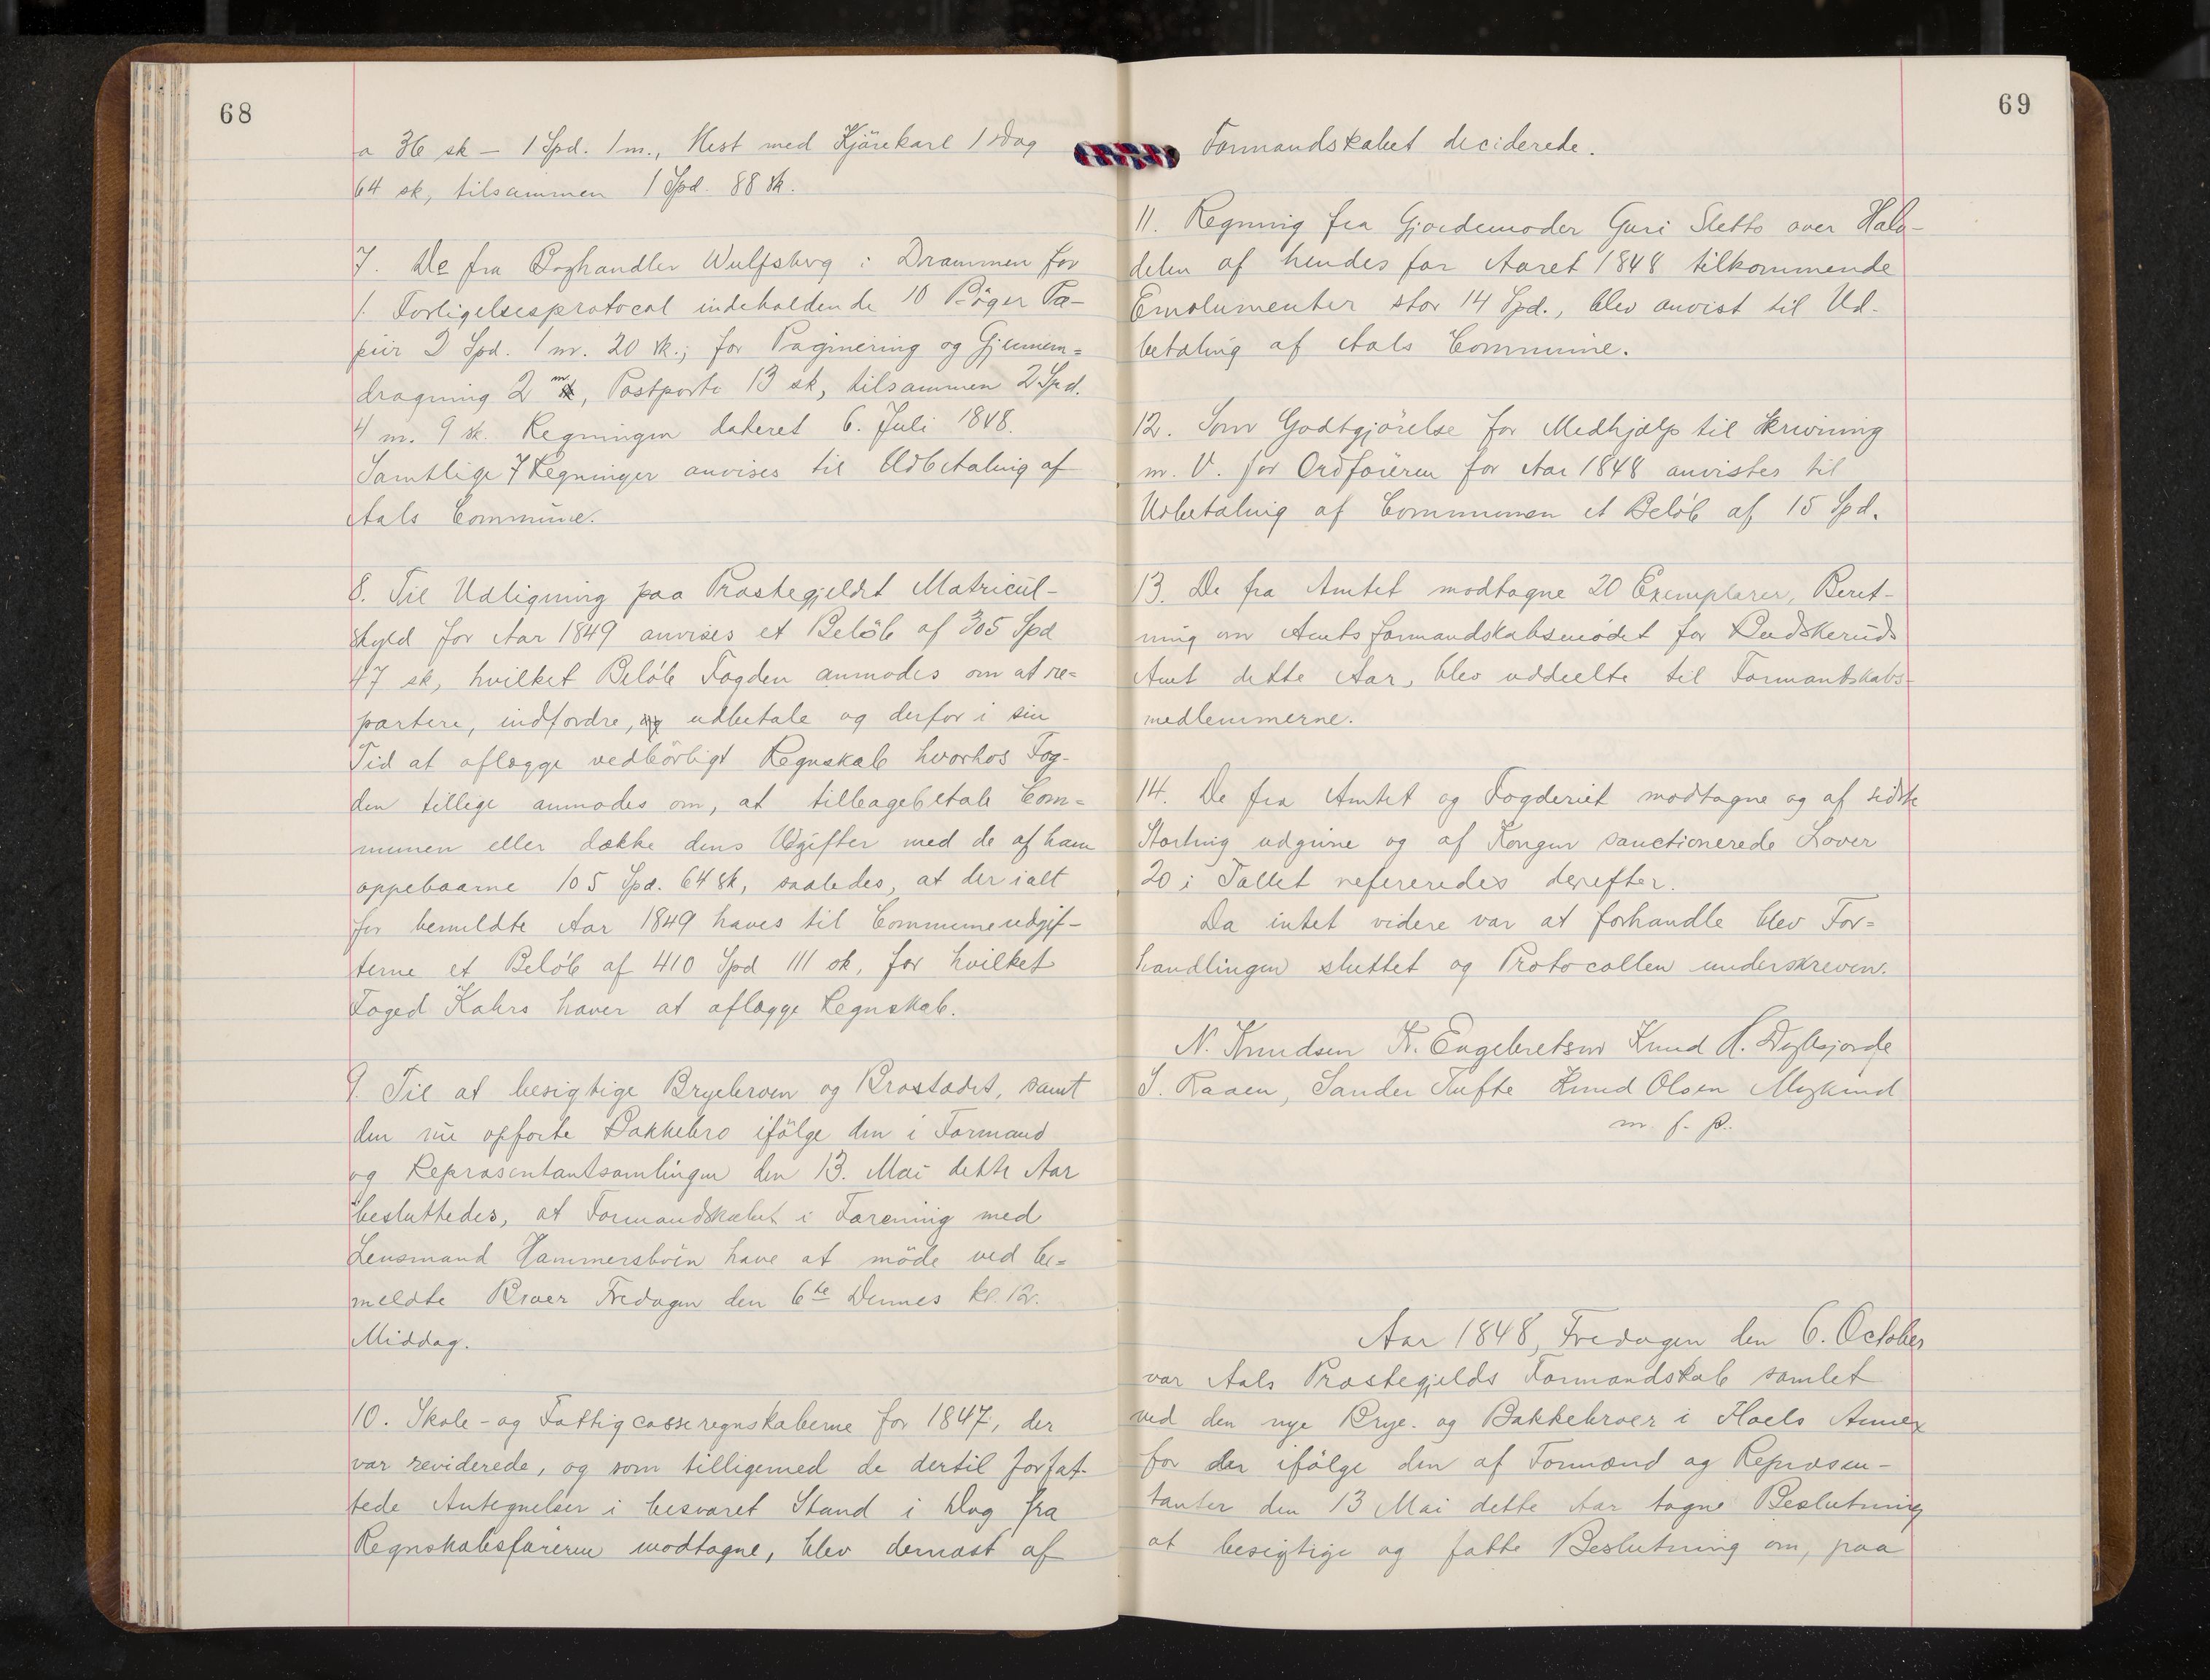 68
a 36 sk – 1 Spd. 1 m., Hest med Kjörekarl 1 Dag
64 sk, tilsammen 1 Spd. 88 sk.
7. De fra Boghandler Wulfsberg i Drammen for
1 Forligelsesprotocol indeholdende 10 Böger Pa-
pir 2 Spd. 1 m. 20 sk.; for Paginering og Gjennem=
dragning 2 m, Postporto 13 sk, tilsammen 2 Spd.
4 m. 9 sk. Regningen dateret 6. Juli 1848.
Samtlige 7 Regninger anvises til Udbetaling af
Aals Commune.
8. Til Udligning paa Præstegjeldet Matricul-
skyld for Aar 1849 anvises et Belöb af 305 Spd
47 sk, hvilket Belöb Fogden anmodes om at re=
partere, indfordre, og udbetale og derfor i sin
Tid at aflægge vedbörligt Regnskab hvorhos Fog-
den tillige anmodes om, at tilbagebetale Com=
munen eller dække dens Udgifter med de af ham
oppebaarne 105 Spd. 64 sk, saaledes, at der ialt
for bemeldte Aar 1849 haves til Communeudgif-
terne et Belöb af 410 Spd 111 sk, for hvilket
Foged Kahrs haver at aflægge Regnskab.
9. Til at besigtige Bryebroen og Brostædet, samt
den nu opforte Bakkebro ifölge den i Formand
og Repræsentantsamlingen den 13. Mai dette Aar
besluttedes, at Formandskabet i Forening med
Lensmand Hammersböin have at möde ved be=
meldte Broer Fredagen den 6te Dennes kl. 12.
Middag.
10. Skole- og Fattigcasseregnskaberne for 1847, der
var reviderede, og som tilligemed de dertil forfat-
tede Antegnelser i besvaret Stand i Dag fra
Regnskabsføreren modtagne, blev dernæst af
69
Formandskabet deciderede.
11. Regning fra Gjordemoder Guri Sletto over Halv-
delen af hendes for Aaret 1848 tilkommende
Emolumenter stor 14 Spd., blev anvist til Ud-
betaling af Aals Commune.
12. Som Godtgjörelse for Medhjælp til Skrivning
m. V. for Ordföreren for Aar 1848 anvistes til
Udbetaling af Communen et Belöb af 15 Spd.
13. De fra Amtet modtagne 20 Exemplarer, Beret-
ning om Amtsformandskabsmödet for Budskeruds
Amt dette Aar, blev uddeelte til Formandskabs-
medlemmerne.
14. De fra Amtet og Fogderiet modtagne og af sidste
Storthing udgivne og af Kongen sanctionerede Lover
20 i Tallet refereredes derefter.
Da intet videre var at forhandle blev For=
handlingen sluttet og Protocollen underskreven.
N. Knudsen K. Engebretsen Knud H.
S. Raaen, Sander Tufte Knud Olsen Myking
m. f. P.
Aar 1848, Fredagen den 6. October
var Aals Præstegjelds Formandskab samlet
ved den nye Brye- og Bakkebroer i Hols Annex
for der ifölge den af Formænd og Repræsen-
tanter den 13 Mai dette Aar tagne Beslutning
at besigtige og fatte Beslutning om, paa